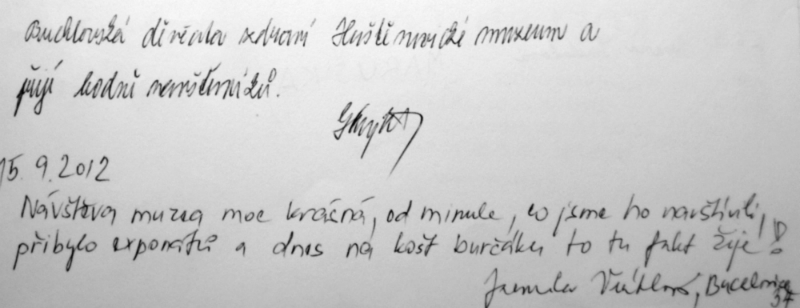 Buchlovská děvčata zdraví Huštěnovické muzeum a
přejí hodně návštěvníků.
15. 9. 2012
Návštěva muzea moc krásná, od minule, co jsme ho navštívili,
přibylo exponátů a dnes na košt burčáku to tu fakt žije!
Jarmila